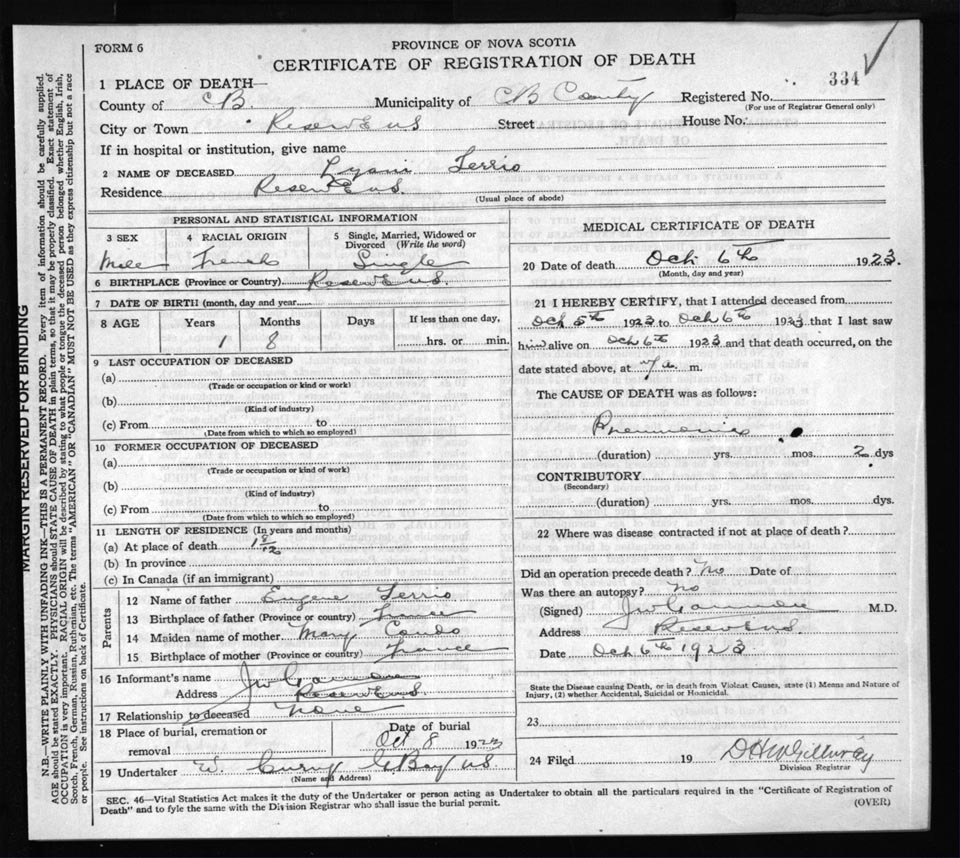 FORM 6
PROVINCE OF NOVA SCOTIA
CERTIFICATE OF REGISTRATION OF DEATH
334
1 PLACE OF DEATH—
County of CB. Municipality of CB County Registered No.
(For use of Registrar General only)
City or Town Reserve NS Street House No.
If in hospital or institution, give name
2 NAME OF DECEASED Terrio
Residence Reserve NS.
(Usual place of abode)
PERSONAL AND STATISTICAL INFORMATION
3 SEX 4 RACIAL ORIGIN 5 Single, Married, Widowed or Divorced (Write the word)
Male French Single
6 BIRTHPLACE (Province or Country) Reserve NS.
7 DATE OF BIRTH (month, day and year)
8 AGE Years Months Days If less than one day,
1 8 hrs. or min.
9 LAST OCCUPATION OF DECEASED
(a)
(Trade or occupation or kind or work)
(b)
(Kind of industry)
(c) From to
(Date from which to which so employed)
10 FORMER OCCUPATION OF DECEASED
(a)
(Trade or occupation or kind of work)
(b)
(Kind of industry)
(c) From to
(Date from which to which so employed)
11 LENGTH OF RESIDENCE (In years and months)
(a) At place of death 1 8/12
(b) In province
(c) In Canada (if an immigrant)
Parents
12 Name of father Eugene Terrio
13 Birthplace of father (Province or country) France
14 Maiden name of mother Mary
15 Birthplace of mother (Province or country) France
16 Informant's name
Address Reserve NS.
17 Relationship to deceased none
18 Place of burial, cremation or removal Date of burial
Oct 8 1923
19 Undertaker W. Curry G Bay NS
(Name and Address)
MEDICAL CERTIFICATE OF DEATH
20 Date of death Oct 6th 1923.
(Month, day and year)
21 I HEREBY CERTIFY, that I attended deceased from
Oct 5th 1923 to Oct 6th 1923 that I last saw
him alive on Oct 6th 1923 and that death occurred, on the
date stated above, at 7 a. m.
The CAUSE OF DEATH was as follows:
Pneumonia
(duration) yrs. mos. 2 dys
CONTRIBUTORY
(Secondary)
(duration) yrs. mos. dys.
22 Where was disease contracted if not at place of death?
Did an operation precede death? No Date of
Was there an autopsy? No
(Signed) M.D.
Address Reserve NS
Date Oct 6th 1923
State the Disease causing Death, or in death from Violent Causes, state (1) Means and Nature of
Injury, (2) whether Accidental, Suicidal or Homicidal.
23
24 Filed 19
Division Registrar
SEC. 46—Vital Statistics Act makes it the duty of the Undertaker or person acting as Undertaker to obtain all the particulars required in the "Certificate of Registration of
Death" and to fyle the same with the Division Registrar who shall issue the burial permit.
(OVER)
MARGIN RESERVED FOR BINDING
N.B.—WRITE PLAINLY WITH UNFADING INK—THIS IS A PERMANENT RECORD. Every item of information should be carefully supplied.
AGE should be stated EXACTLY. PHYSICIANS should STATE CAUSE OF DEATH in plain terms, so that it may be properly classified. Exact statement of
OCCUPATION is very important. RACIAL ORIGIN will be described by stating to what people or tongue the deceased person belonged whether English, Irish,
Scotch, French, German, Russian, Ruthenian, etc. The terms "AMERICAN" OR "CANADIAN" MUST NOT BE USED as they express citizenship but not a race
or people. See instructions on back of Certificate.